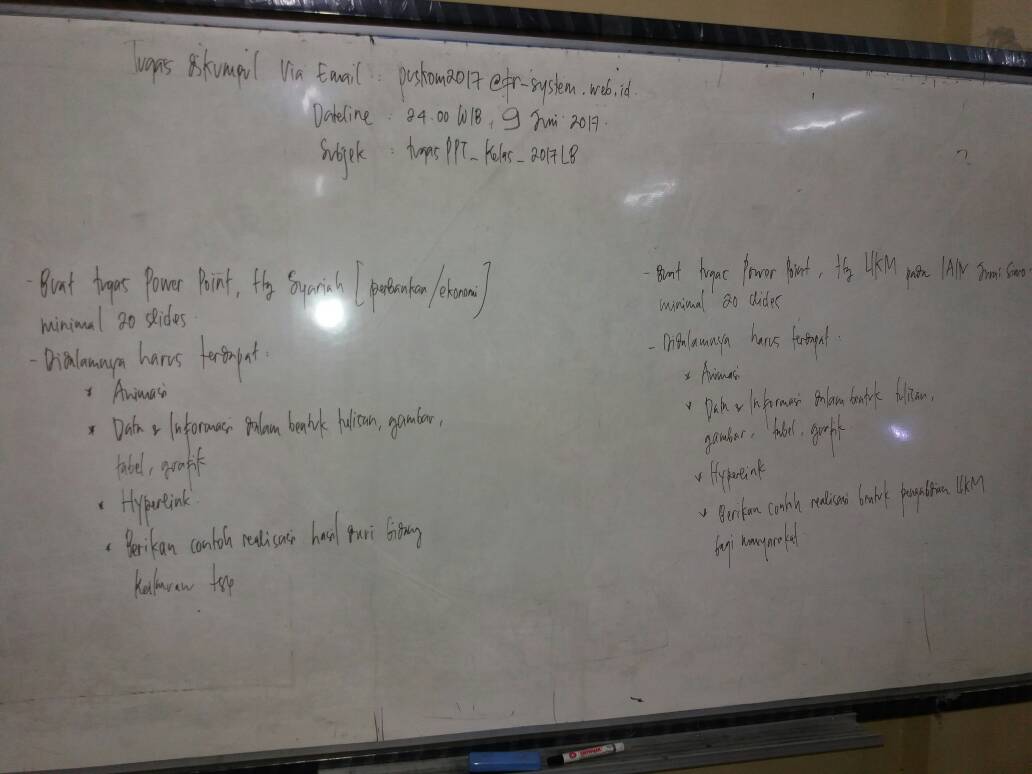 Tugas dikumpul Via Email : puskom2017@fr-system.web.id
Dateline : 24.00 WIB, 9 Juni 2017.
Subjek : tugas PPT_Kelas_2017LB
- Buat tugas Power Point, ttg Syariah [perbankan/ekonomi]
minimal 20 slides.
- Didalamnya harus terdapat :
* Animasi
* Data & Informasi dalam bentuk tulisan, gambar,
tabel, grafik
* Hyperlink
* Berikan contoh realisasi hasil dari bidang
tsb
- Buat tugas Power Point, ttg UKM pada IAIN
minimal 20 slides
- Didalamnya harus terdapat :
* Animasi
* Data & Informasi dalam bentuk tulisan,
gambar, tabel, grafik
* Hyperlink
* Berikan contoh realisasi bentuk pengabdian UKM
bagi masyarakat